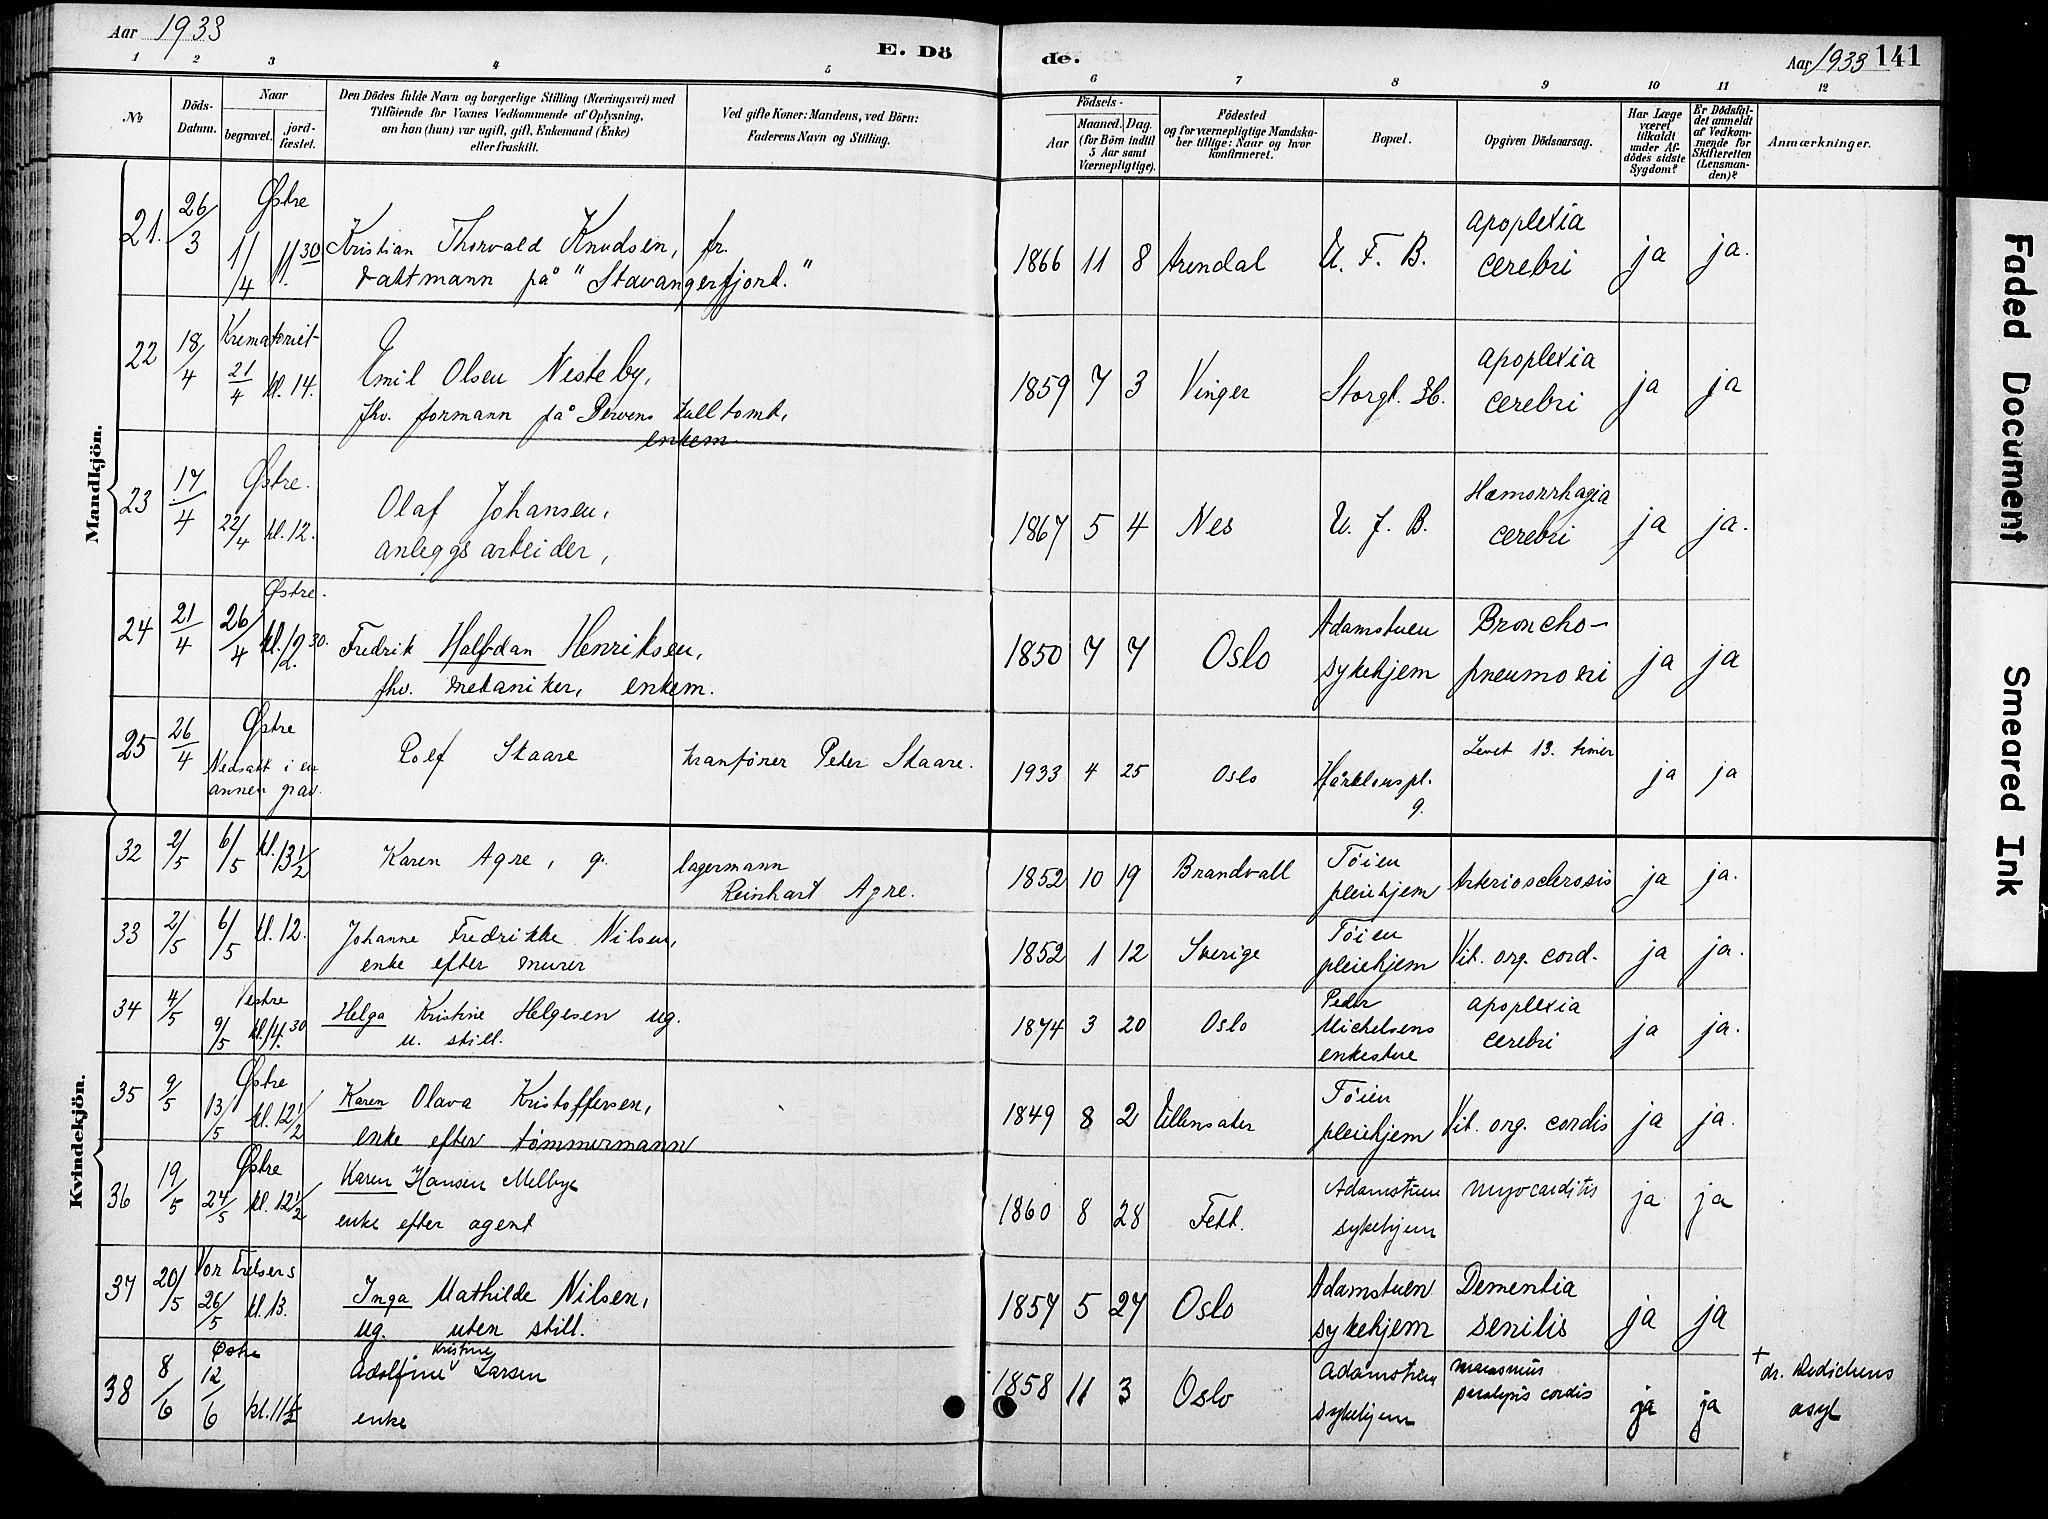 Aar 1933
E. Dö
de.
Aar 1933 141
1 2 3 4 5 6 7 8 9 10 11 12
No
Döds-
Datum.
Naar
begravet.
jord-
fæstet.
Den Dödes fulde Navn og borgerlige Stilling (Næringsvei) med
Tilföiende for Voxnes Vedkommende af Oplysning,
om han (hun) var ugift, gift, Enkemand (Enke)
eller fraskilt.
Ved gifte Koner: Mandens, ved Börn:
Faderens Navn og Stilling.
Födsels-
Aar
Maaned. Dag.
(for Börn indtil
5 Aar samt
Værnepligtige).
Födested
og for værnepligtige Mandska-
ber tillige: Naar og hvor
konfirmeret.
Bopæl.
Opgiven Dödsaarsag.
Har Læge
været
tilkaldt
under Af-
dödes sidste
Sygdom?
Er Dödsfal-
det anmeldt
af Vedkom-
mende for
Skifteretten
(Lensman-
den)?
Anmærkninger.
Mandkjön.
21. 26/3 Østre 1/4 11.30 Kristian Thorvald Knudsen, fr.
vaktmann på "Stavangerfjord."
1866 11 8 Arendal U. F. B. apoplexia
cerebri ja ja.
22 18/4 Krematoriet 21/4 kl. 14. Emil Olsen Nesteby,
fhv. formann på tolltomt,
enkem.
1859 7 3 Vinger Storgt. 36. apoplexia
cerebri ja ja
23 17/4 Østre. 22/4 kl. 12. Olaf Johansen,
anleggsarbeider,
1867 5 4 Nes U. F. B. Hæmorrhagia
cerebri ja ja.
24 21/4 Østre. 26/4 kl. 12.30. Fredrik Halfdan Henriksen,
fhv. mekaniker, enkem.
1850 7 7 Oslo Adamstuen
sykehjem Broncho-
pneumoni ja ja
25 26/4 Østre
Nedsatt i en
annen grav. Rolf Skaare kranfører Peder Skaare.
1933 4 25 Oslo Hårklouspl.
9. Levet 13. timer ja ja
Kvindekjön.
32 2/5 6/5 kl. 13 1/2 Karen Agre, g. lagermann
Reinhart Agre.
1852 10 19 Brandvall Tøien
pleiehjem Arteriosclerosis ja ja.
33 2/5 6/5 kl. 12. Johanne Fredrikke Nilsen,
enke efter murer
1852 1 12 Sverige Tøien
pleiehjem Vit. org. cord. ja ja.
34 4/5 Vestre 9/5 kl. 14.30 Helga Kristine Helgesen ug.
u. still.
1874 3 20 Oslo Peder
Michelsens
enkestue apoplexia
cerebri ja ja.
35 9/5 Østre 13/5 kl. 12 1/2 Karen Olava Kristoffersen,
enke efter tømmermann
1849 8 2 Ullensaker Tøien
pleiehjem Vit. org. cordis ja ja.
36 19/5 Østre 24/5 kl. 12 1/2 Karen Hansen Melbye
enke efter agent
1860 8 28 Fett. Adamstuen
sykehjem myocarditis ja ja
37 20/5 Vor Frelsers 26/5 kl. 13. Inga Mathilde Nilsen,
ug. uten still.
1857 5 27 Oslo Adamstuen
sykehjem Dementia
senilis ja ja
38 8/6 Østre 12/6 kl. 11 1/2 Adolfine Kristine Larsen
enke
1858 11 3 Oslo Adamstuen
sykehjem marasmus
paralysis cordis ja ja † dr. Dedichens
asyl
Faded Document
Smeared Ink